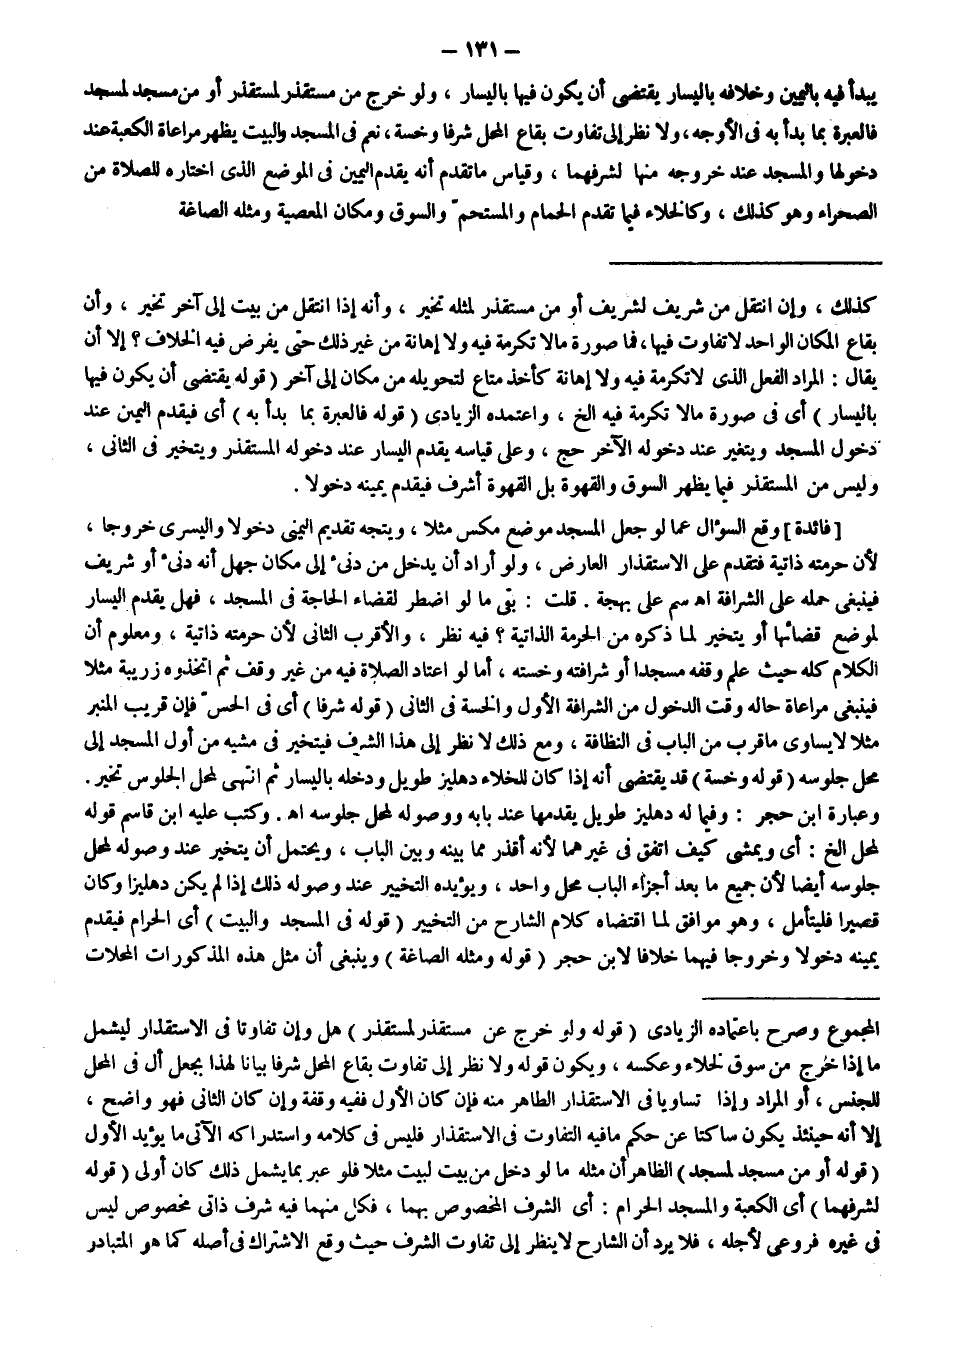 – ١٣١ –
يبدأ فيه باليمين وخلافه باليسار يقتضى أن يكون فيها باليسار ، ولو خرج من مستقذر لمستقذر أو من مسجد لمسجد
فالعبرة بما بدأ به فى الأوجه، ولا نظر إلى تفاوت بقاع المحل شرفا وخسة، نعم فى المسجد والبيت يظهر مراعاة الكعبة عند
دخولها والمسجد عند خروجه منها لشرفهما ، وقياس ماتقدم أنه يقدم اليمين فى الموضع الذى اختاره للصلاة من
الصحراء وهو كذلك ، وكالخلاء فيما تقدم الحمام والمستحمّ والسوق ومكان المعصية ومثله الصاغة
كذلك ، وإن انتقل من شريف لشريف أو من مستقذر لمثله تخير ، وأنه إذا انتقل من بيت إلى آخر تخير ، وأن
بقاع المكان الواحد لاتفاوت فيها، فما صورة مالا تكرمة فيه ولا إهانة من غير ذلك حتى يفرض فيه الخلاف ؟ إلا أن
يقال : المراد الفعل الذى لاتكرمة فيه ولا إهانة كأخذ متاع لتحويله من مكان إلى آخر ( قوله يقتضى أن يكون فيها
باليسار ) أى فى صورة مالا تكرمة فيه الخ ، واعتمده الزيادى ( قوله فالعبرة بما بدأ به ) أى فيقدم اليمين عند
دخول المسجد ويتغير عند دخوله الآخر حج ، وعلى قياسه يقدم اليسار عند دخوله المستقذر ويتخير فى الثانى ،
وليس من المستقذر فيما يظهر السوق والقهوة بل القهوة أشرف فيقدم يمينه دخولا .
[ فائدة ] وقع السؤال عما لو جعل المسجد موضع مكس مثلا ، ويتجه تقديم اليمنى دخولا واليسرى خروجا ،
لأن حرمته ذاتية فتقدم على الاستقذار العارض ، ولو أراد أن يدخل من دنىء إلى مكان جهل أنه دنىء أو شريف
فينبغى حمله على الشرافة اه سم على بهجة . قلت : بقى ما لو اضطر لقضاء الحاجة فى المسجد ، فهل يقدم اليسار
لموضع قضائها أو يتخير لما ذكره من الحرمة الذاتية ؟ فيه نظر ، والأقرب الثانى لأن حرمته ذاتية ، ومعلوم أن
الكلام كله حيث علم وقفه مسجدا أو شرافته وخسته ، أما لو اعتاد الصلاة فيه من غير وقف ثم اتخذوه زريبة مثلا
فينبغى مراعاة حاله وقت الدخول من الشرافة الأول والخسة فى الثانى ( قوله شرفا ) أى فى الحسّ فإن قريب المنبر
مثلا لايساوى ماقرب من الباب فى النظافة ، ومع ذلك لا نظر إلى هذا الشرف فيتخير فى مشيه من أول المسجد إلى
محل جلوسه ( قوله وخسة ) قد يقتضى أنه إذا كان للخلاء دهليز طويل ودخله باليسار ثم انتهى لمحل الجلوس تخير .
وعبارة ابن حجر : وفيما له دهليز طويل يقدمها عند بابه ووصوله لمحل جلوسه اه . وكتب عليه ابن قاسم قوله
لمحل الخ : أى ويمشى كيف اتفق فى غيرهما لأنه أقذر مما بينه وبين الباب ، ويحتمل أن يتخير عند وصوله لمحل
جلوسه أيضا لأن جميع ما بعد أجزاء الباب محل واحد ، ويؤيده التخيير عند وصوله ذلك إذا لم يكن دهليزا وكان
قصيرا فليتأمل ، وهو موافق لما اقتضاه كلام الشارح من التخيير ( قوله فى المسجد والبيت ) أى الحرام فيقدم
يمينه دخولا وخروجا فيهما خلافا لابن حجر ( قوله ومثله الصاغة ) وينبغى أن مثل هذه المذكورات المحلات
المجموع وصرح باعتماده الزيادى ( قوله ولو خرج عن مستقذر لمستقذر ) هل وإن تفاوتا فى الاستقذار ليشمل
ما إذا خرج من سوق لخلاء وعكسه ، ويكون قوله ولا نظر إلى تفاوت بقاع المحل شرفا بيانا لهذا يجعل أل فى المحل
للجنس ، أو المراد وإذا تساويا فى الاستقذار الطاهر منه فإن كان الأول ففيه وقفة وإن كان الثانى فهو واضح ،
إلا أنه حينئذ يكون ساكتا عن حكم مافيه التفاوت فى الاستقذار فليس فى كلامه واستدراكه الآتى ما يؤيد الأول
( قوله أو من مسجد لمسجد ) الظاهر أن مثله ما لو دخل من بيت لبيت مثلا فلو عبر بما يشمل ذلك كان أولى ( قوله
لشرفهما ) أى الكعبة والمسجد الحرام : أى الشرف المخصوص بهما ، فكل منهما فيه شرف ذاتى مخصوص ليس
فى غيره فروعى لأجله ، فلا يرد أن الشارح لاينظر إلى تفاوت الشرف حيث وقع الاشتراك فى أصله كما هو المتبادر